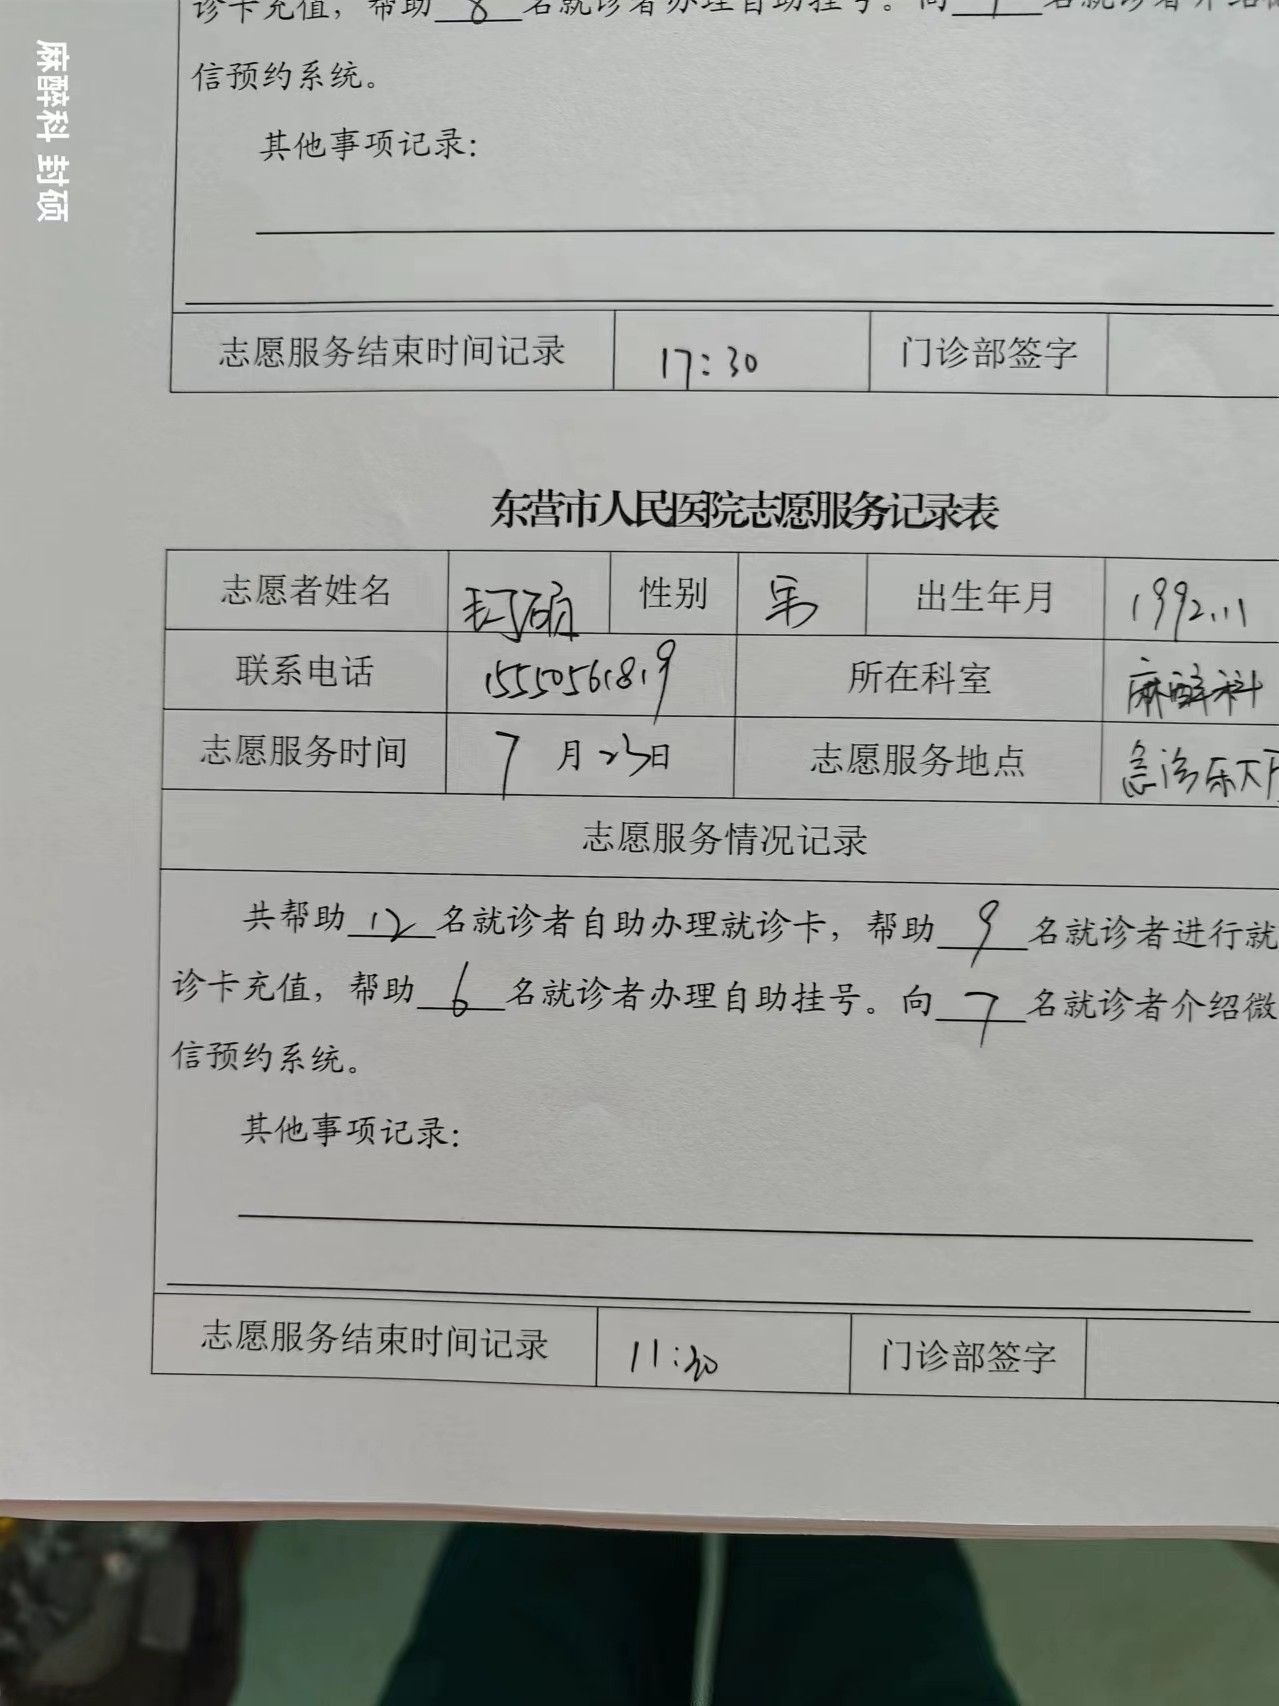 麻醉科 封硕
诊卡充值，帮助 8 名就诊者办理自助挂号。向 名就诊者介绍微
信预约系统。
其他事项记录：
志愿服务结束时间记录 17:30 门诊部签字
东营市人民医院志愿服务记录表
志愿者姓名 封硕 性别 男 出生年月 1992.11
联系电话 15550561819 所在科室 麻醉科
志愿服务时间 7 月 23 日 志愿服务地点 急诊
志愿服务情况记录
共帮助 12 名就诊者自助办理就诊卡，帮助 9 名就诊者进行就
诊卡充值，帮助 6 名就诊者办理自助挂号。向 7 名就诊者介绍微
信预约系统。
其他事项记录：
志愿服务结束时间记录 11:30 门诊部签字